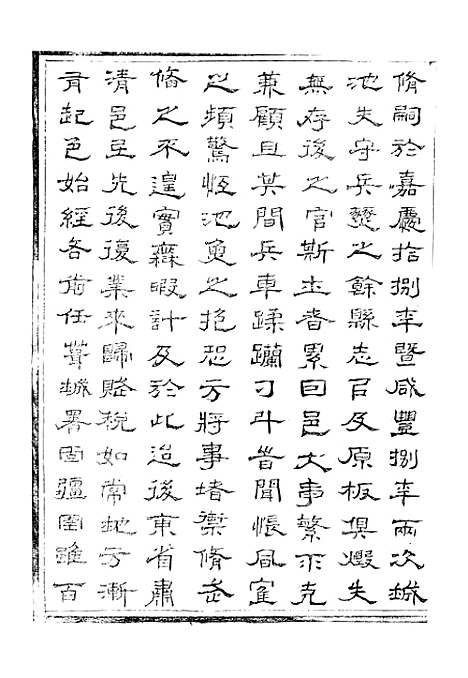 脩嗣於嘉慶拾捌年暨咸豐捌年兩次城
池失守兵燹之餘縣志𠯁及原板俱燬失
無存後之官斯土者累因邑大事繁不克
兼顧且其間兵車蹂躪刁斗昔聞悵風窪
之頻驚恆池魚之抱恐方將事堵禦脩武
脩之不遑實霖暇計及於此迨後東省肅
清邑民先後復業來歸賦稅如常地方漸
有起色始經各前任葺城署固疆圉雖百